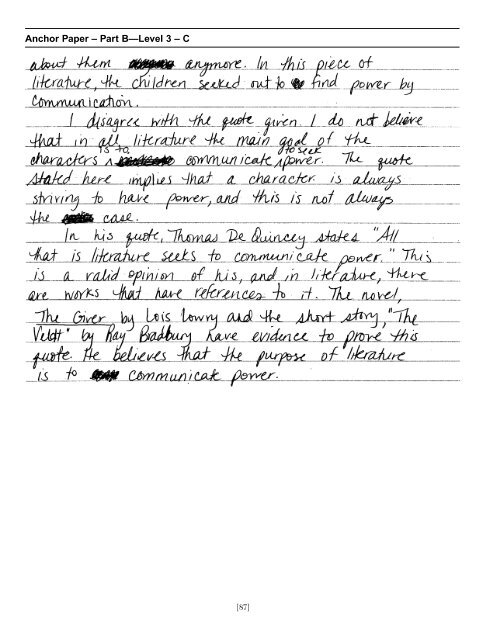 Anchor Paper – Part B—Level 3 – C
about them anymore. In this piece of
literature, the children seeked out to find power by
communication.
I disagree with the quote given. I do not believe
that in all literature the main goal of the
characters is to communicate /to seek power. The quote
stated here implies that a character is always
striving to have power, and this is not always
the case.
In his quote, Thomas De Quincey states "All
that is literature seeks to communicate power." This
is a valid opinion of his, and in literature, there
are works that have references to it. The novel,
The Giver by Lois Lowry and the short story, "The
Veldt" by Ray Bradbury have evidence to prove this
quote. He believes that the purpose of literature
is to communicate power.
[87]